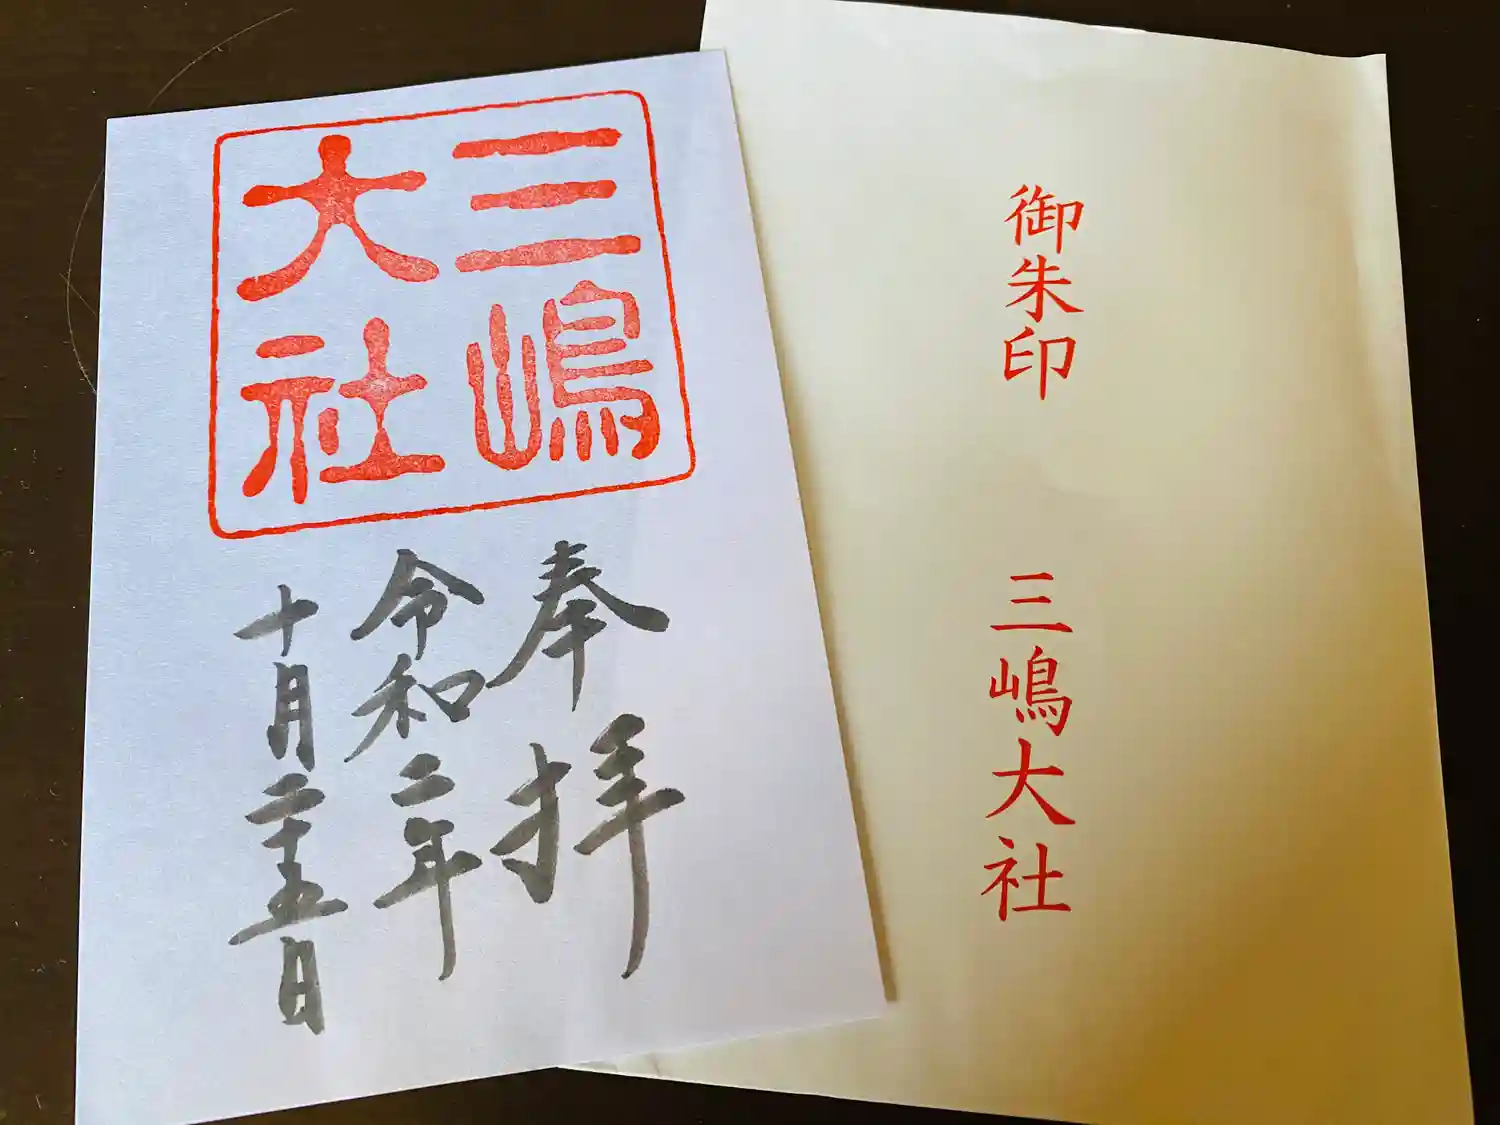 三嶋
大社
奉拝
令和二年
十月二十五日
御朱印
三嶋大社